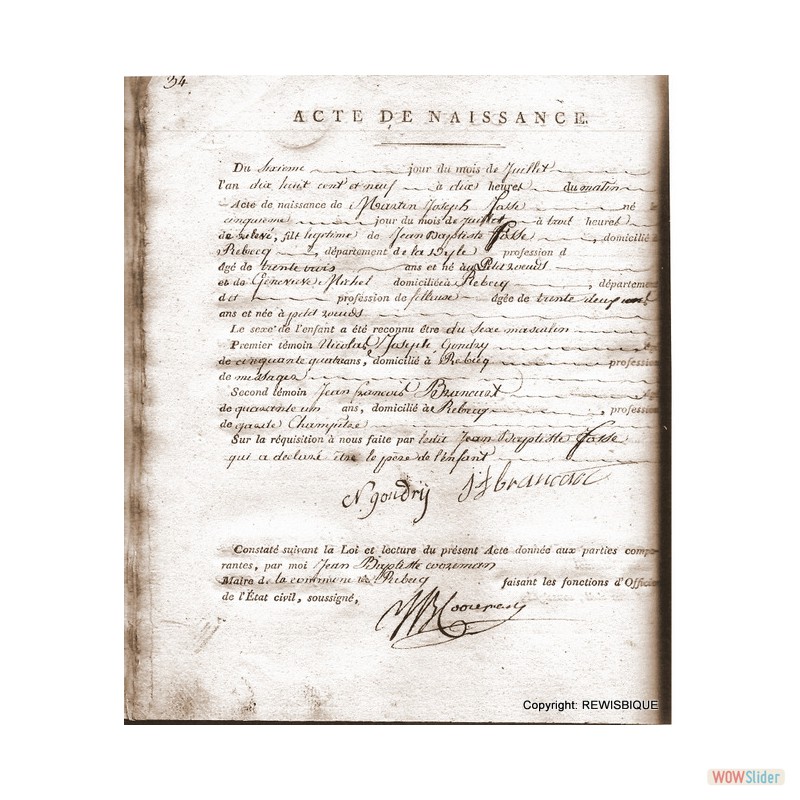 34
ACTE DE NAISSANCE.
Du sixieme jour du mois de Juillet
l'an dix huit cent et neuf à dix heures du matin
Acte de naissance de Martin Joseph Fasse né le
cinquieme jour du mois de Juillet à trois heures
de relevé, fils légitime de Jean Baptiste Fasse, domicilié à
Rebecq, département de la Dyle profession d
âgé de trente trois ans et né au Petit
et de Genevieve Michel domiciliée à Rebecq, départemen
d et profession de fileuse âgée de trente deux
ans et née à petit
Le sexe de l'enfant a été reconnu être du sexe masculin
Premier témoin Nicolas Joseph Gondry
de cinquante quatre ans, domicilié à Rebecq profession
de messager
Second témoin Jean françois Brancart
de quarante un ans, domicilié à Rebecq, profession
de garde Champetre
Sur la réquisition à nous faite par ledit Jean Baptiste Fasse
qui a declaré être le pere de l'enfant
N. gondrij jf brancart
Constaté suivant la Loi et lecture du présent Acte donnée aux parties compa-
rantes, par moi Jean Baptiste
Maire de la commune de Rebecq faisant les fonctions d'Officier
de l'État civil, soussigné,
Copyright: REWISBIQUE
WOWSlider